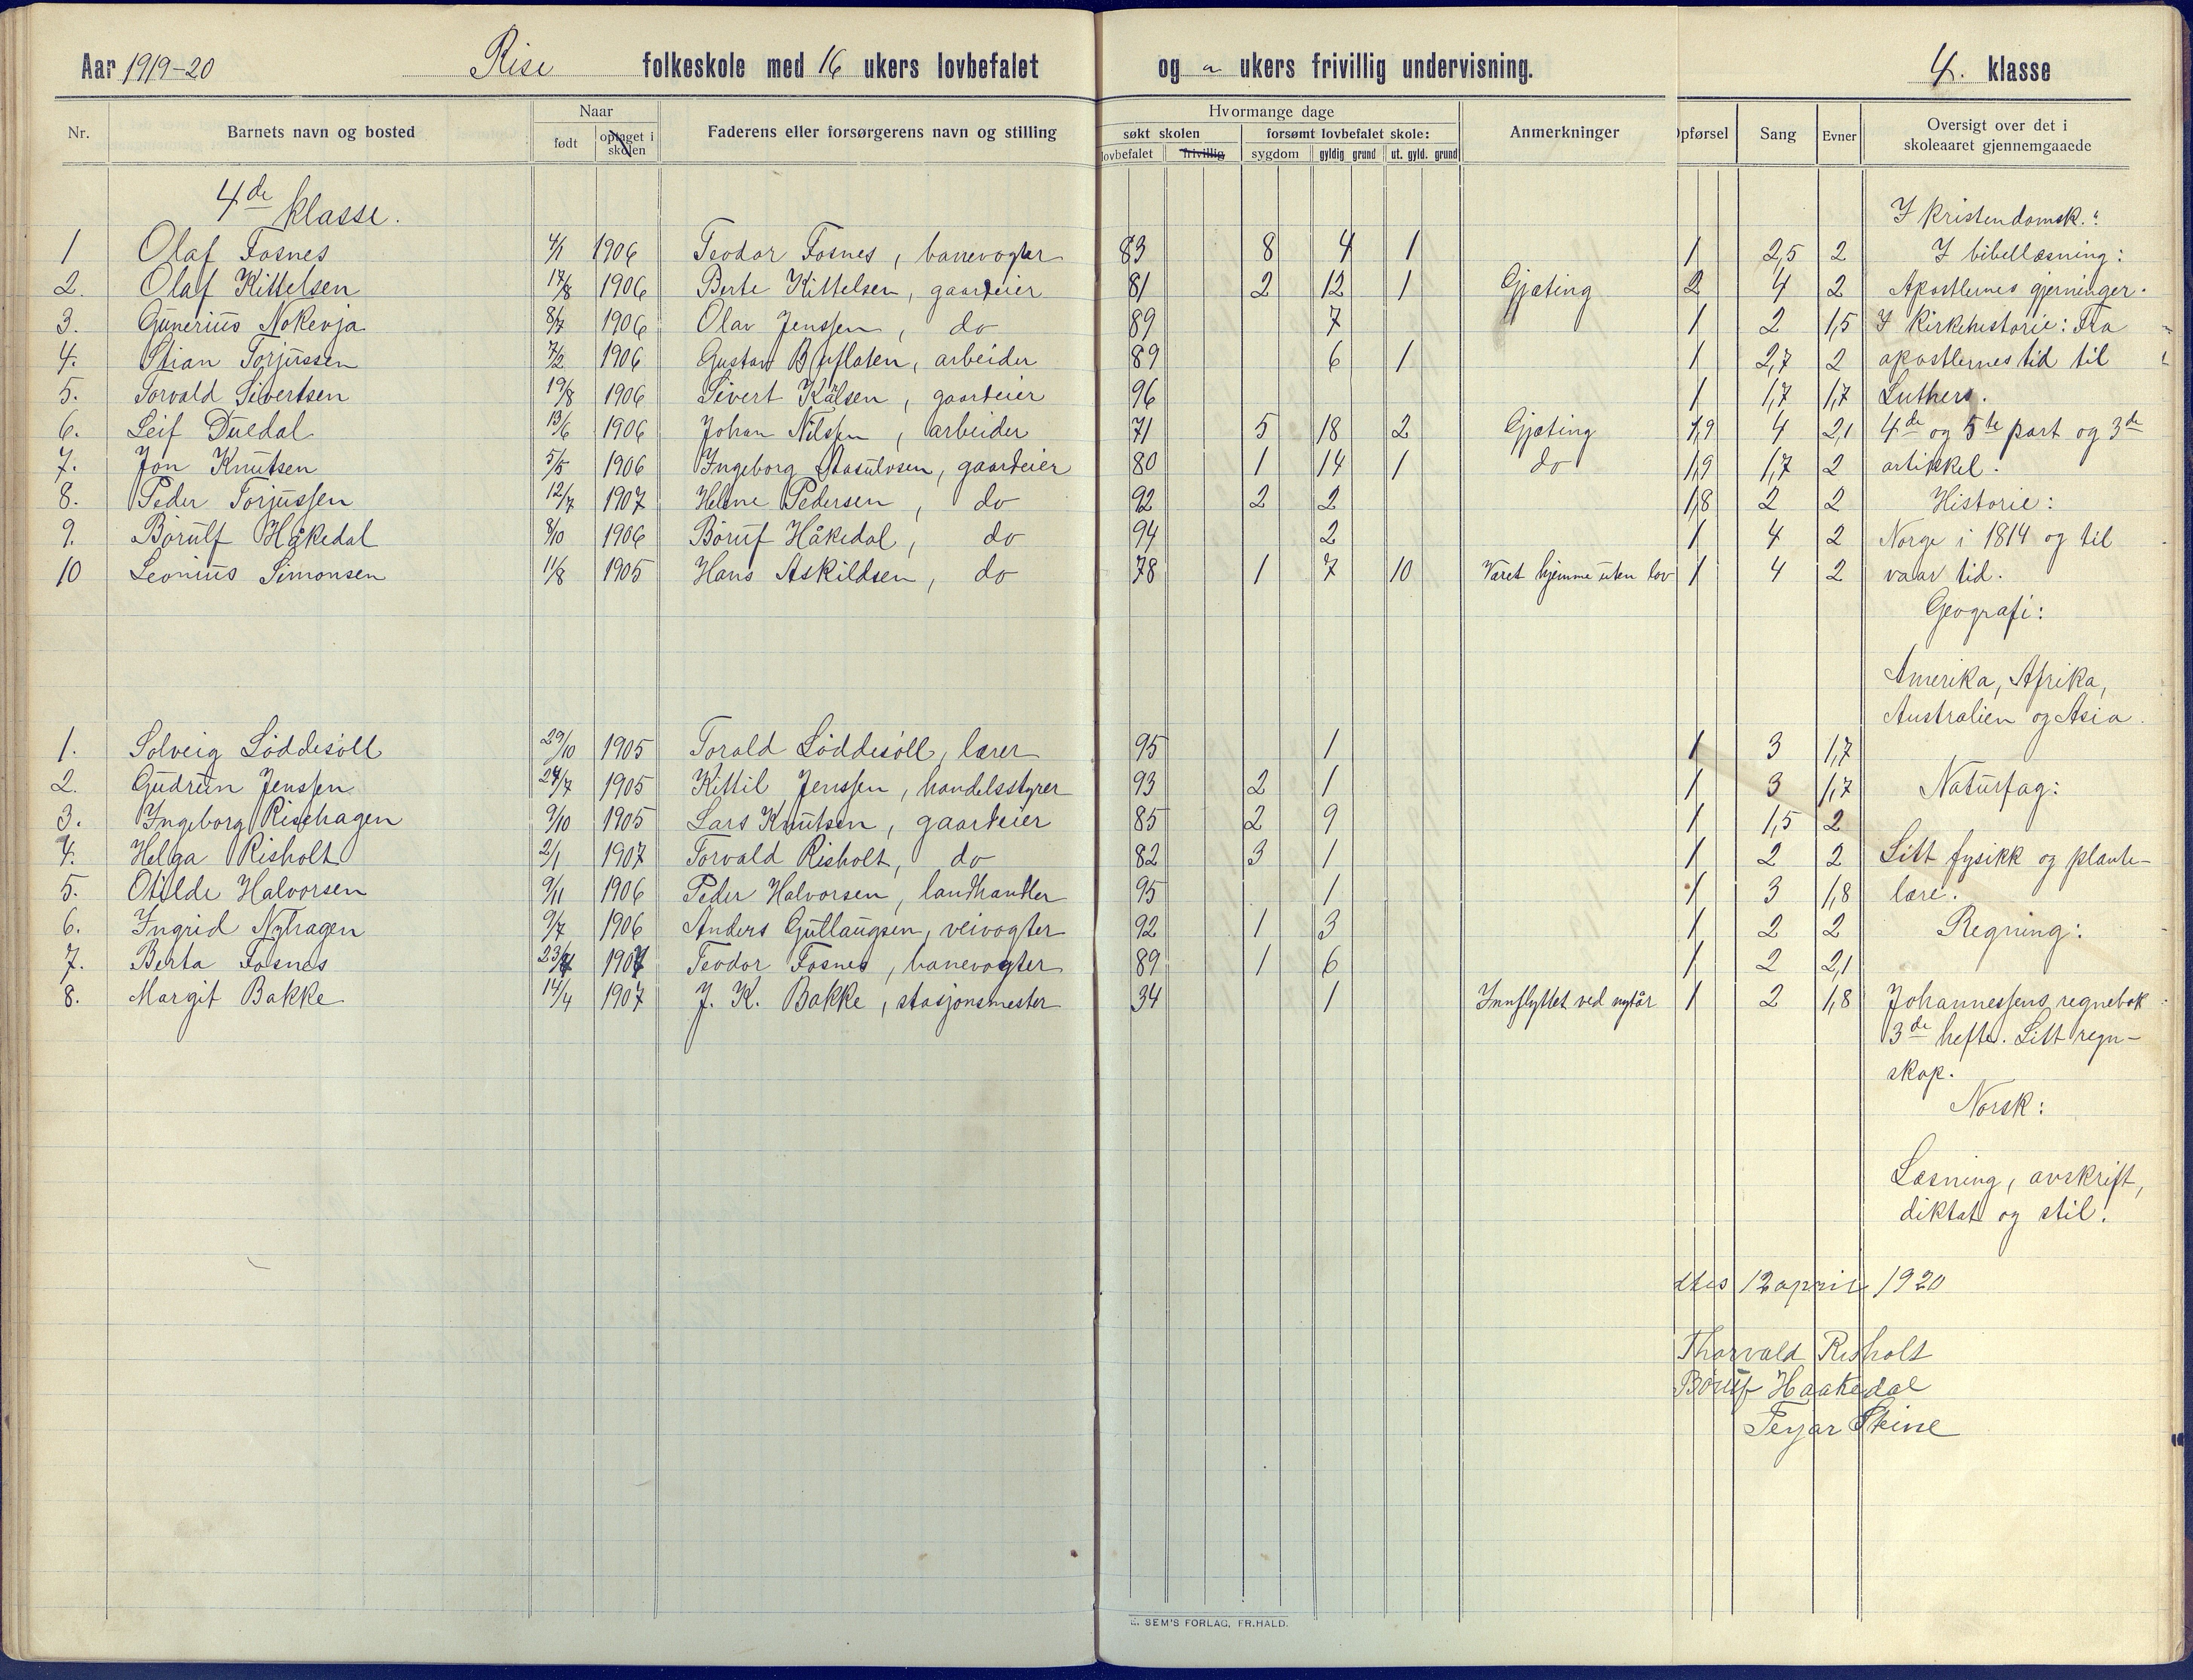 Aar 1919-20 Rise folkeskole med 16 ukers lovbefalet og " ukers frivillig undervisning. 4. klasse
Nr. Barnets navn og bosted Naar født optaget i skolen Faderens eller forsørgerens navn og stilling Hvormange dage søkt skolen lovbefalet frivillig forsømt lovbefalet skole: sygdom gyldig grund ut. gyld. grund Anmerkninger Opførsel Sang Evner Oversigt over det i skoleaaret gjennemgaaede
4de klasse.
1 Olaf Fosnes 4/1 1906 Teodor Fosnes, banevogter 83 8 4 1 1 2,5 2
2. Olaf Kittelsen 17/8 1906 Berte Kittelsen, gaardeier 81 2 12 1 Gjæting 2 4 2
3. Gunerius Nokevja 8/7 1906 Olav Jenssen, do 89 7 1 2 1,5
4. Stian Torjussen 7/2 1906 Gustav Bufloten, arbeider 89 6 1 1 2,7 2
5. Torvald Sivertsen 19/8 1906 Sivert Kålsen, gaardeier 96 1 1,7 1,7
6. Leif Duedal 13/6 1906 Johan Nilssen, arbeider 71 5 18 2 Gjæting 1,9 4 2,1
7. Jon Knutsen 5/5 1906 Ingeborg gaardeier 80 1 14 1 do 1,9 1,7 2
8. Peder Torjussen 12/7 1907 Helene Pedersen, do 92 2 2 1,8 2 2
9. Børulf Håkedal 8/10 1906 Børuf Håkedal, do 94 2 1 4 2
10 Leonius Simonsen 11/8 1905 Hans Askildsen, do 78 1 7 10 Været hjemme uten lov 1 4 2
1. Solveig Løddesøll 29/10 1905 Torald Løddesøll, lærer 95 1 1 3 1,7
2. Gudrun Jenssen 24/7 1905 Kittil Jenssen, handelsstyrer 93 2 1 1 3 1,7
3. Ingeborg Risehagen 9/10 1905 Lars Knutsen, gaardeier 85 2 9 1 1,5 2
4. Helga Risholt 2/1 1907 Torvald Risholt, do 82 3 1 1 2 2
5. Otilde Halvorsen 9/11 1906 Peder Halvorsen, landhandler 95 1 1 3 1,8
6. Ingrid Nyhagen 9/7 1906 Anders Gutlaugsen, veivogter 92 1 3 1 2 2
7. Berta Fosnes 1907 Teodor Fosnes, banevogter 89 1 6 1 2 2,1
8. Margit Bakke 14/4 1907 J. K. Bakke, stasjonsmester 34 1 Innflyttet ved nytår 1 2 1,8
I kristendomsk.:
I bibellæsning:
Apostlernes gjerninger.
I kirkehistorie: Fra
apostlernes tid til
Luthers.
4de og 5te part og 3de
artikkel.
Historie:
Norge i 1814 og til
vaar tid.
Geografi:
Amerika, Afrika,
Australien og Asia.
Naturfag:
Litt fysikk og plante-
lære.
Regning:
Johannessens regnebok
3de hefte. Litt regn-
skap.
Norsk:
Læsning, avskrift,
diktat og stil.
12 april 1920
Thorvald Risholt
Børuf Haakedal
Terjar Steine
E. SEM'S FORLAG, FR.HALD.